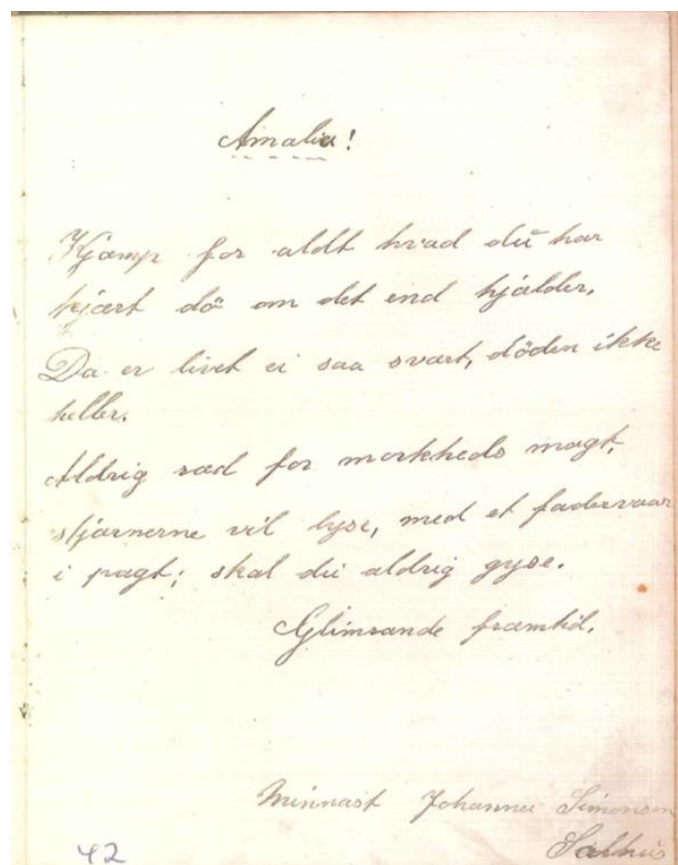 Amalia!
Kjæmp for aldt hvad du har
kjært dö om det end hjælder.
Da er livet ei saa svært, döden ikke
heller.
Aldrig ræd for morkheds magt,
stjärnerne vil lyse, med et fadervaar
i pagt; skal du aldrig gyse.
Glimrande framtid.
Minnast Johanna Simonsen
Salhus
42